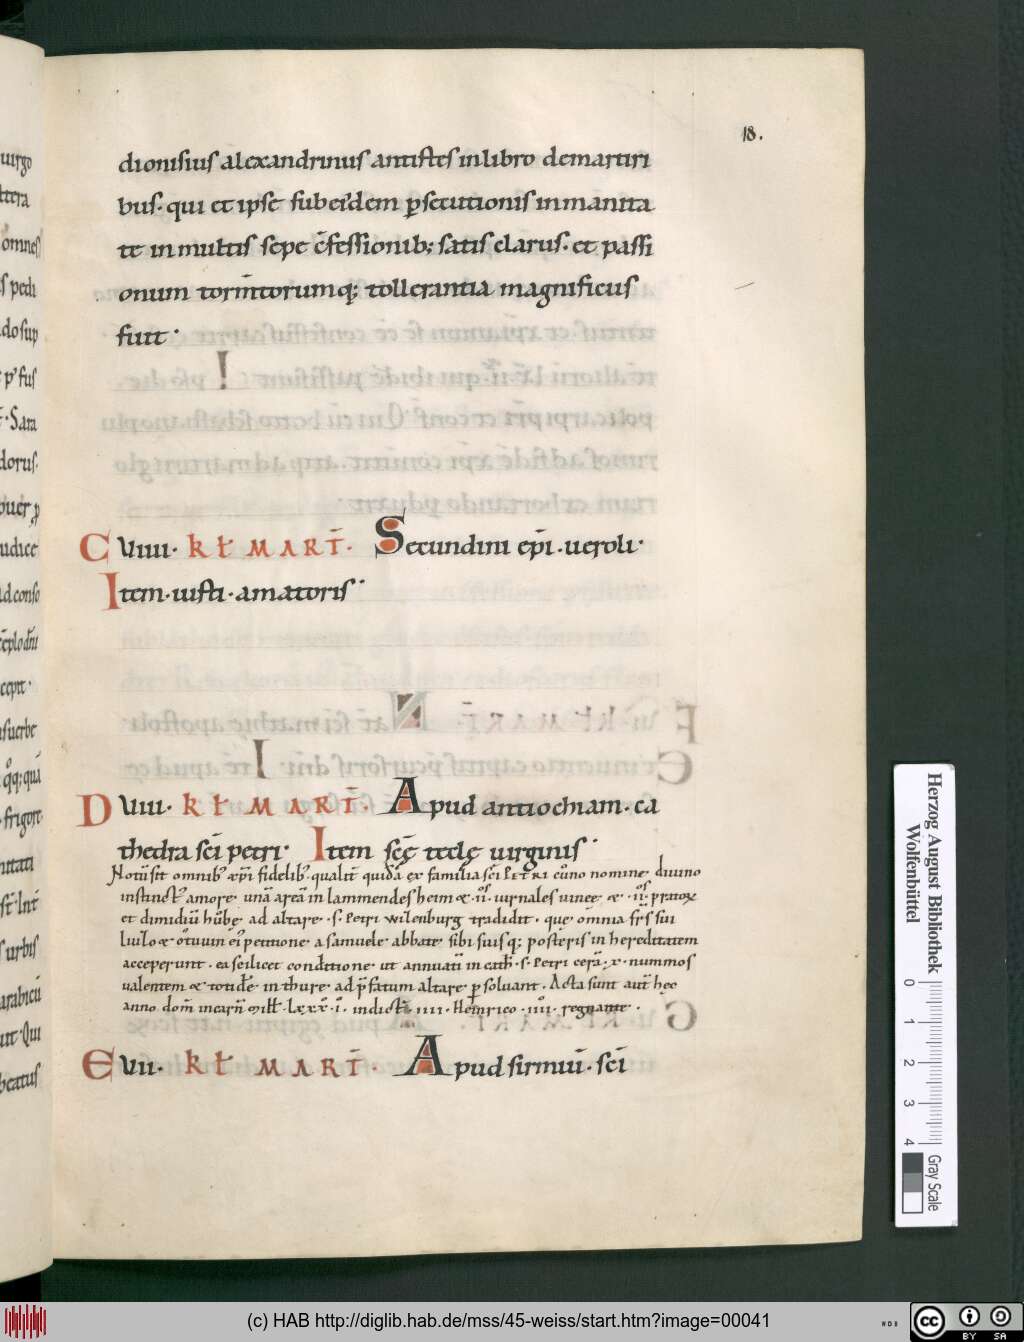 18.
dionisius alexandrinus antistes in libro de martiri
bus. qui et ipse sub eidem p̱secutionis inmanita
te in multis sepe c̄fessionib; satis clarus. et passi
onum torm̄torumq; tollerantia magnificus
fuit.
C VIIII. KƚMART̄. Secundini ep̄i. ueroli.
Item. iusti. amatoris.
D VIII. KƚMART̄. Apud antiochiam. ca
thedra sc̄i petri. Item sc̄ę teclę uirginis.
Notū sit omnib; xp̄i fidelib; qualit̄ quidā ex familia sc̄i PETRI cūno nomine diuino
instinct᷒ amore unā areā in lammendesheim &
et dimidiū hūbę ad altare .s. Petri wilenburg tradidit. quę om̄ia frs̄ sui
petitione a samuele abbate sibi suisq; posteris in hereditatem
acceperunt. ea scilicet conditione ut annuati in cath̄ .s. Petri cerā .x. nummos
ualentem & totidē in thure ad p̄fatum altare p̱soluant. Acta sunt aut̄ hęc
anno dom̄ incarn̄ mill̄. LXXX. I. indict̄ IIII. Heinrico .IIII. regnante.
E VII. KƚMART̄. Apud sirmiū. sc̄i
uirgo
omnes
s pedi
do sup
Sara
dorus.
udice
ad conso
cepit.
q̊q; quā
frigore
urbis
arabicū
Qui
beatus
Herzog August Bibliothek
Wolfenbüttel
0
1
2
3
4
Gray Scale
(c) HAB http://diglib.hab.de/mss/45-weiss/start.htm?image=00041
WDB
cc BY SA